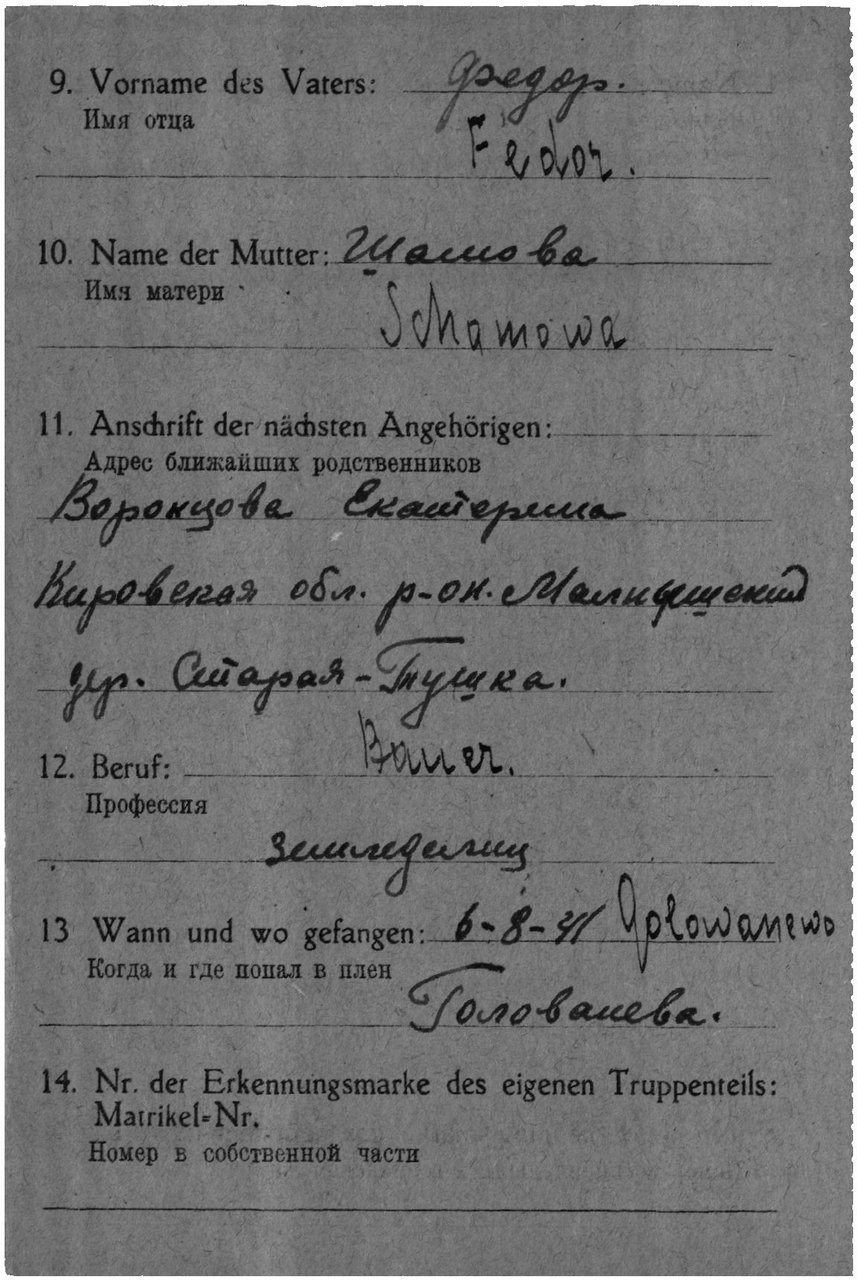 9. Vorname des Vaters: Федор.
Имя отца
Fedor.
10. Name der Mutter: Шамова
Имя матери
Schamowa
11. Anschrift der nächsten Angehörigen:
Адрес ближайших родственников
Воронцова Екатерина
Кировская обл. р-он. Малмышский
дер. Старая-Тушка.
12. Beruf: Bauer.
Профессия
земледелиц
13 Wann und wo gefangen: 6-8-41 Golowanewo
Когда и где попал в плен
Голованева.
14. Nr. der Erkennungsmarke des eigenen Truppenteils:
Matrikel-Nr.
Номер в собственной части